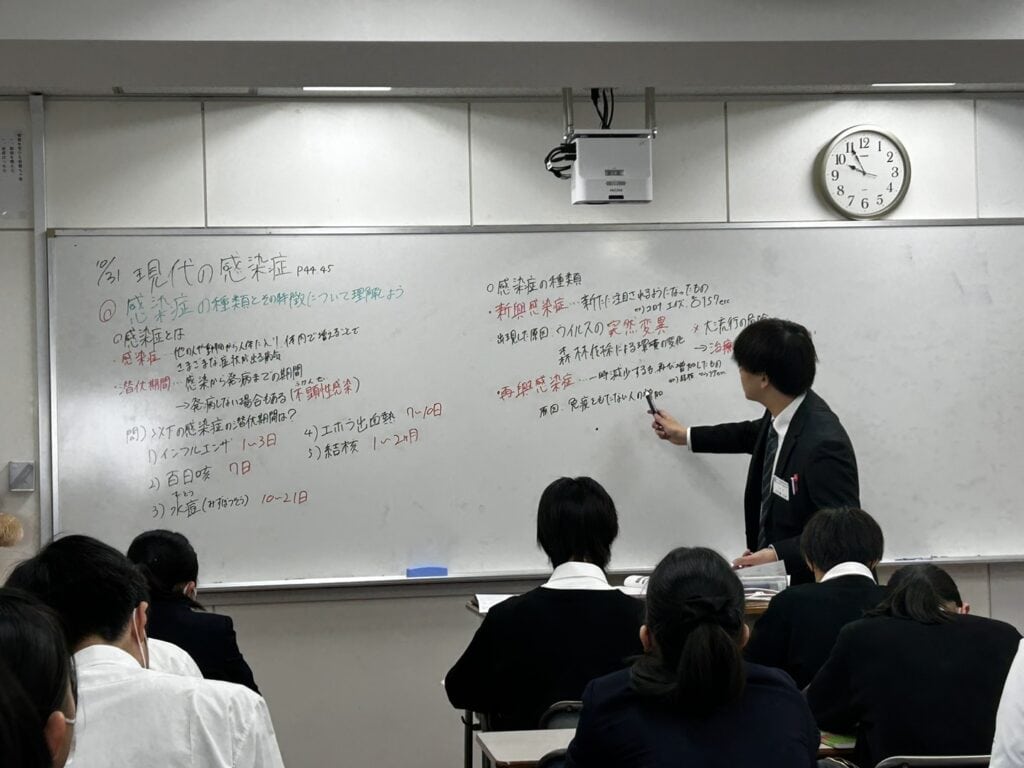 10/31 現代の感染症 P44.45
◎ 感染症の種類とその特徴について理解しよう
○感染症とは
・感染症…他の人や動物から人体に入り、体内で増えることで
さまざまな症状が出る病気
・潜伏期間…感染から発病までの期間
→発病しない場合もある(不顕性感染)
問)以下の感染症の潜伏期間は?
1)インフルエンザ 1～3日
2)百日咳 7日
3)水痘(みずぼうそう) 10～21日
4)エボラ出血熱 7～10日
5)結核 1～2ヶ月
○感染症の種類
・新興感染症…新たに注目されるようになったもの
ex)コロナ エイズ O157 etc
出現した原因:ウイルスの突然変異
森林伐採による環境の変化
※大流行の危険
→治療
・再興感染症…一時減少するも、再び増加したもの
ex)結核 マラリア etc
原因:免疫をもたない人の増加
12 1 2 3 4 5 6 7 8 9 10 11